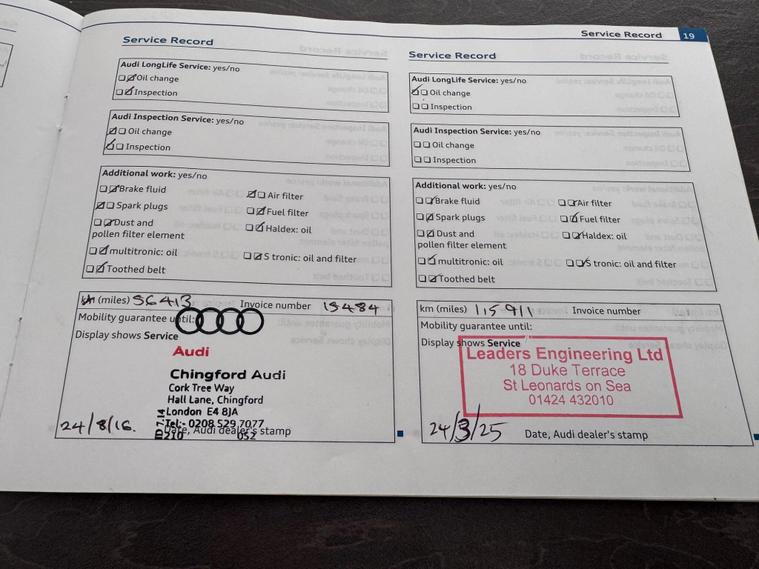 Service Record 19
Service Record
Audi LongLife Service: yes/no
Oil change
Inspection
Audi Inspection Service: yes/no
Oil change
Inspection
Additional work: yes/no
Brake fluid
Air filter
Spark plugs
Fuel filter
Dust and
pollen filter element
Haldex: oil
multitronic: oil
S tronic: oil and filter
Toothed belt
km (miles) 56413 Invoice number 15484
Mobility guarantee until:
Display shows Service
Audi
Chingford Audi
Cork Tree Way
Hall Lane, Chingford
London E4 8JA
Tel:- 0208 529 7077
24/8/16. Date, Audi dealer's stamp
210 052
Service Record
Audi LongLife Service: yes/no
Oil change
Inspection
Audi Inspection Service: yes/no
Oil change
Inspection
Additional work: yes/no
Brake fluid
Air filter
Spark plugs
Fuel filter
Dust and
pollen filter element
Haldex: oil
multitronic: oil
S tronic: oil and filter
Toothed belt
km (miles) 115911 Invoice number
Mobility guarantee until:
Display shows Service
Leaders Engineering Ltd
18 Duke Terrace
St Leonards on Sea
01424 432010
24/3/25 Date, Audi dealer's stamp